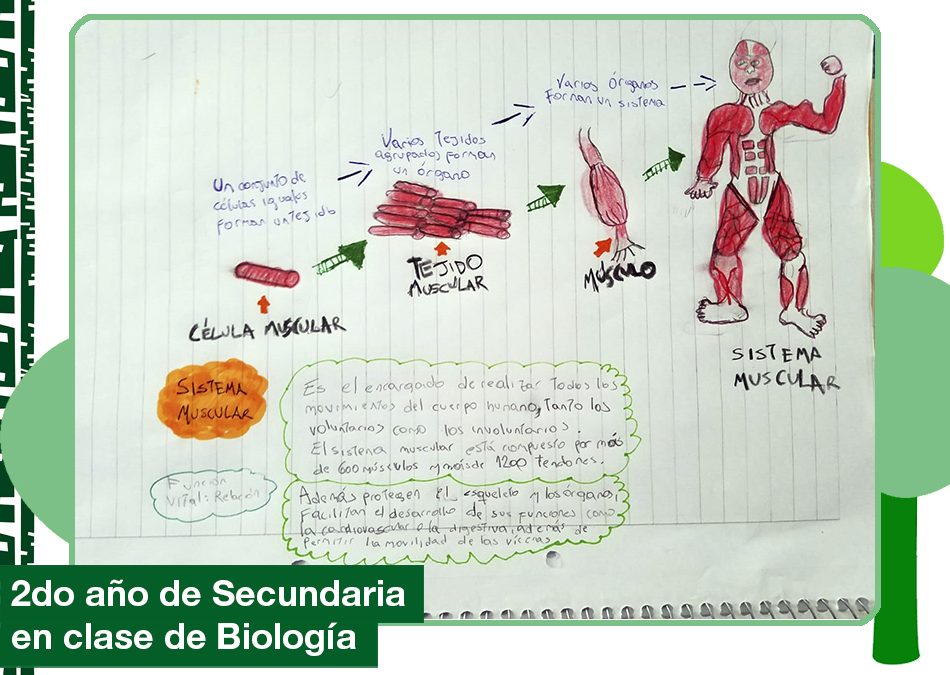 Varios órganos
forman un sistema
Varios tejidos
agrupados forman
un órgano
Un conjunto de
células iguales
forman un tejido
TEJIDO
MUSCULAR
MÚSCULO
CÉLULA MUSCULAR
SISTEMA
MUSCULAR
SISTEMA
MUSCULAR
Es el encargado de realizar todos los
movimientos del cuerpo humano, tanto los
voluntarios como los involuntarios.
El sistema muscular está compuesto por más
de 600 músculos y más de 1200 tendones.
Función
Vital: Relación
Además protegen el esqueleto y los órganos,
Facilitan el desarrollo de sus funciones como
la cardiovascular o la digestiva, además de
permitir la movilidad de las vísceras
2do año de Secundaria
en clase de Biología